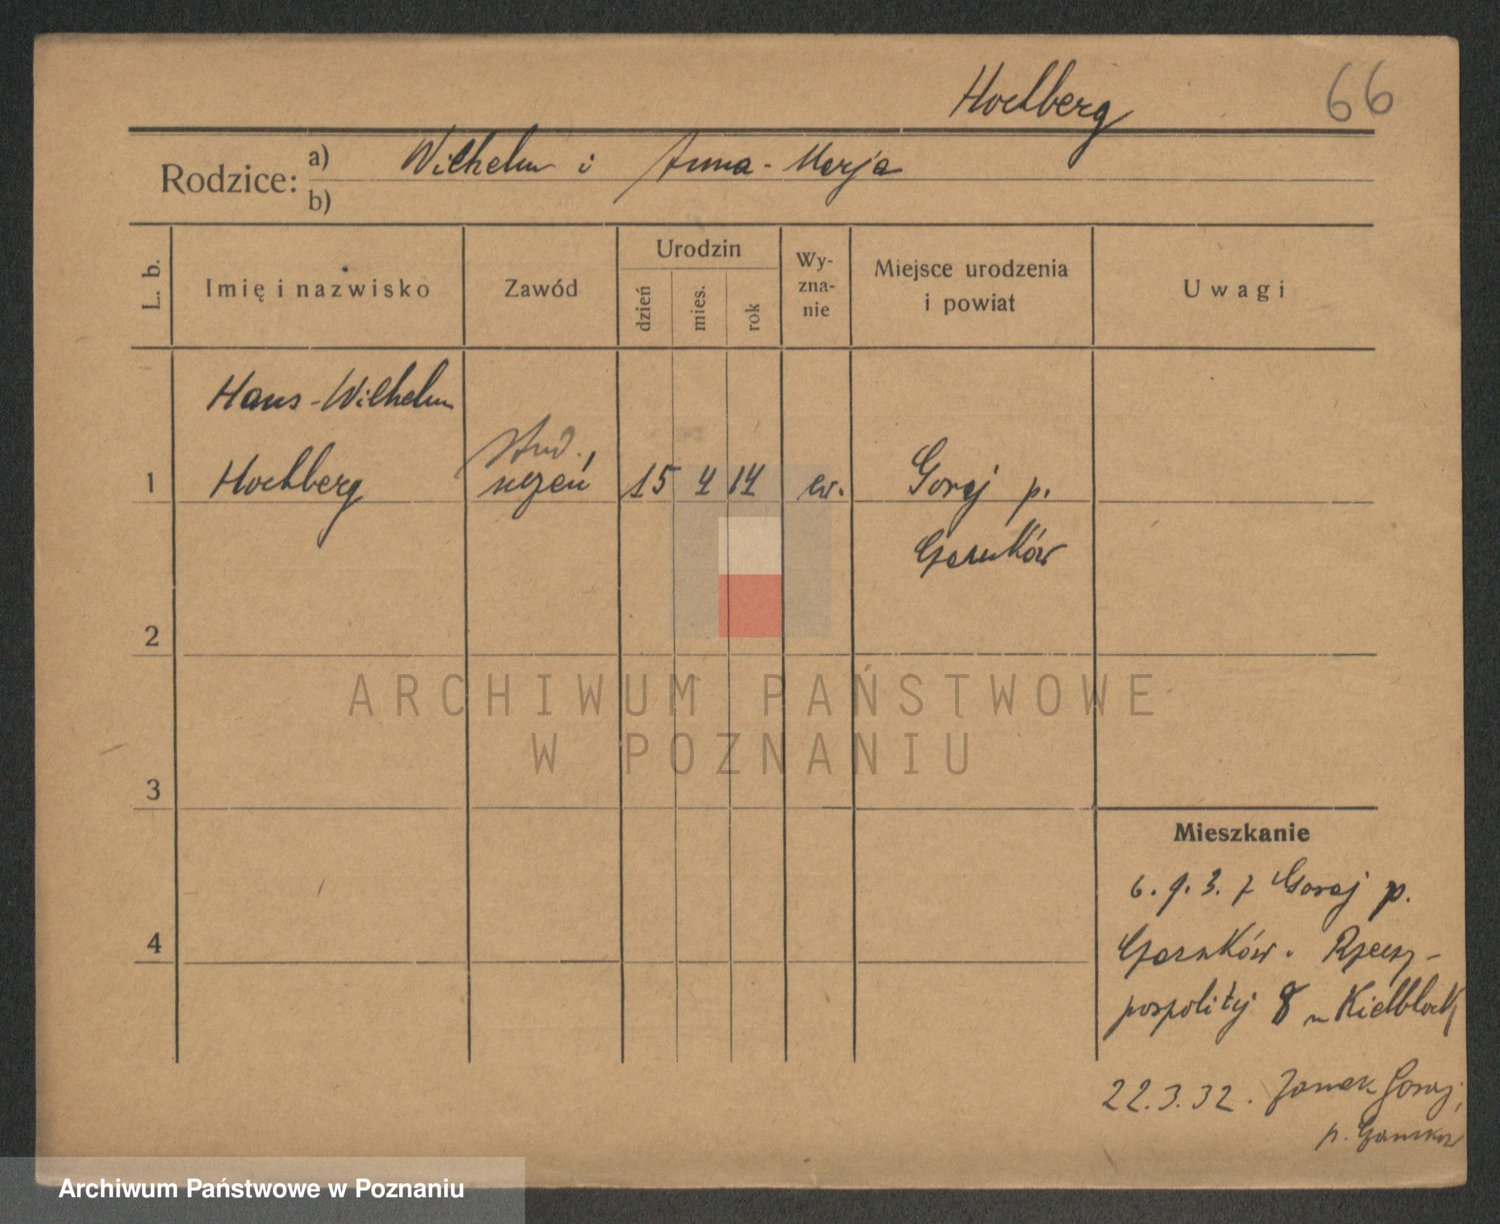 Hochberg
66
Rodzice: a) Wilhelm i Anna-Marja
b)
L. b.
Imię i nazwisko
Zawód
Urodzin
dzień
mies.
rok
Wy-
zna-
nie
Miejsce urodzenia
i powiat
Uwagi
Hans-Wilhelm
stud.,
1 Hochberg uczeń 15 4 14 ew. Goraj p.
Czarnków
2
ARCHIWUM PAŃSTWOWE
W POZNANIU
3
Mieszkanie
6. 9. 3. z Goraj p.
4
Czarnków. Rzeczy-
pospolitej 8 u Kielblock
22.3.32. Zamek Goraj,
p. Czarnków
Archiwum Państwowe w Poznaniu